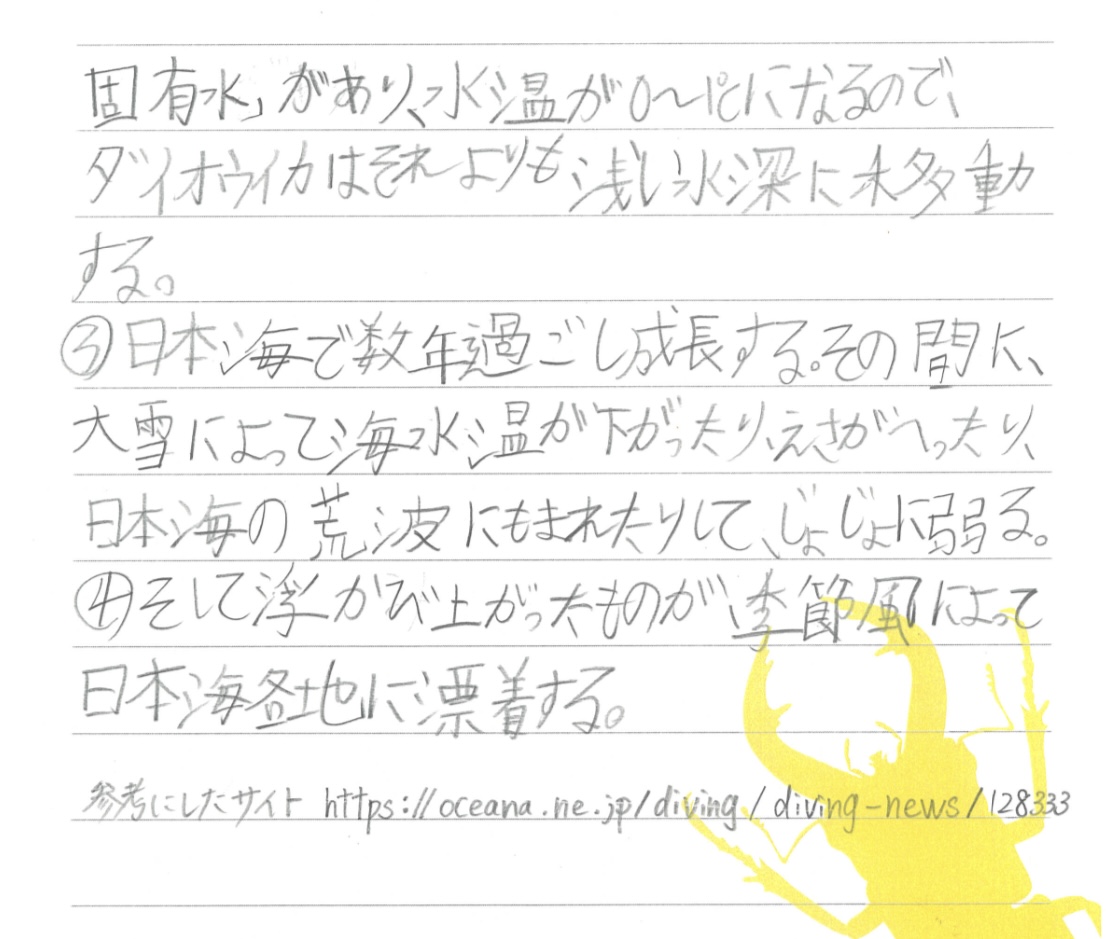 固有水」があり、水温が0〜1℃になるので、
ダイオウイカはそれよりも浅い水深に移動
する。
③日本海で数年過ごし成長する。その間に、
大雪によって海水温が下がったり、えさがへったり、
日本海の荒波にもまれたりして、じょじょに弱る。
④そして浮かび上がったものが、季節風によって
日本海各地に漂着する。
参考にしたサイト https://oceana.ne.jp/diving/diving-news/128333